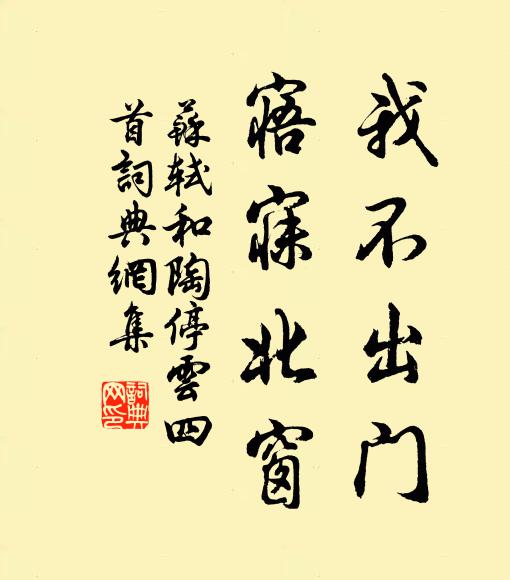 我不出门
寤寐北窗
蘇軾和陶停雲四
首詞典網集
詞典网印